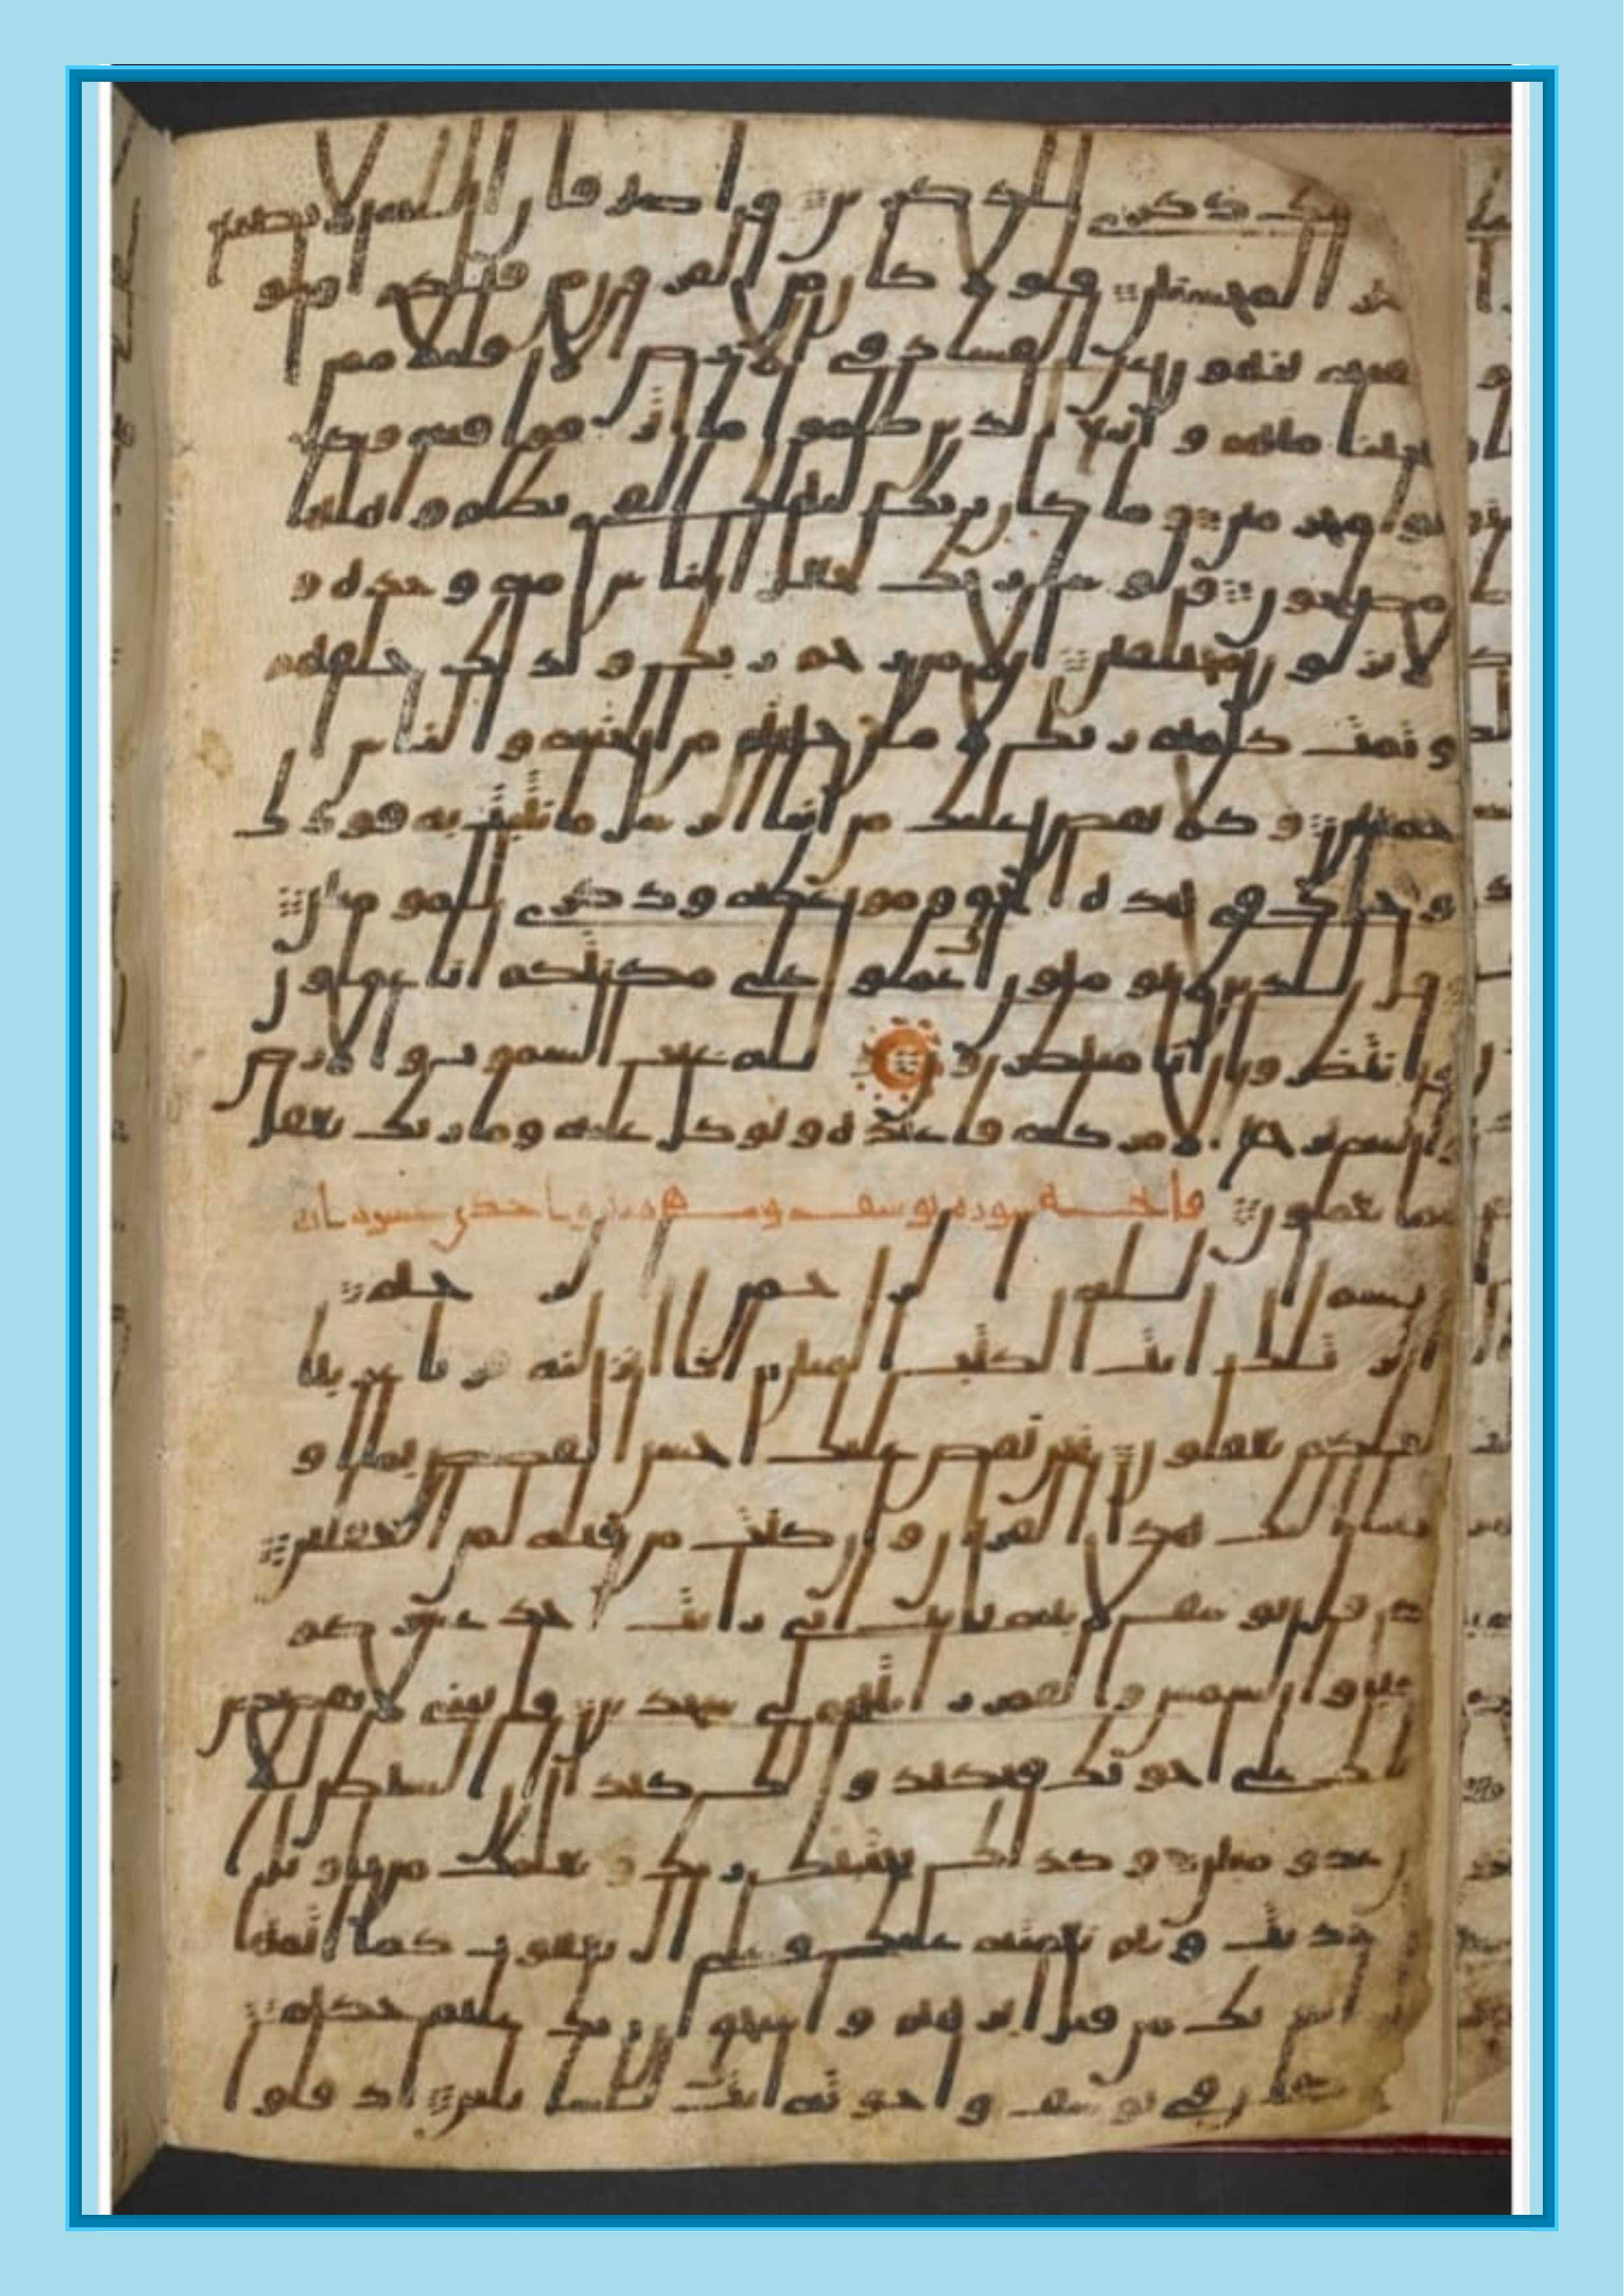 ذلك ذكرى للذكرين واصبر فان الله لا يضيع
اجر المحسنين فلولا كان من القرون من قبلكم اولوا
بقية ينهون عن الفساد في الارض الا قليلا ممن
انجينا منهم واتبع الذين ظلموا ما اترفوا فيه وكا
نوا مجرمين وما كان ربك ليهلك القرى بظلم واهلها
مصلحون ولو شا ربك لجعل الناس امة وحدة و
لا يزلون مختلفين الا من رحم ربك ولذلك خلقهم
وتمت كلمة ربك لاملن جهنم من الجنة والناس ا
جمعين وكلا نقص عليك من انبا الرسل ما نثبت به فودك
وجاك في هذه الحق وموعظة وذكرى للمومنين
وقل للذين لا يومنون اعملوا على مكنتكم انا عملون
وانتظروا انا منتظرون ولله غيب السموت والارض
واليه يرجع الامر كله فاعبده وتوكل عليه وما ربك بغفل
عما تعملون فاتحة سورة يوسف واحدى
بسم الله الرحمن الرحيم
الر تلك ايت الكتب المبين انا انزلنه قرنا عربيا
لعلكم تعقلون نحن نقص عليك احسن القصص بما او
حينا اليك هذا القرن وان كنت من قبله لمن الغفلين
اذ قال يوسف لابيه يابت اني رايت احد عشر كو
كبا والشمس والقمر رايتهم لي سجدين قال يبني لا تقصص
رياك على اخوتك فيكيدوا لك كيدا ان الشيطن للا
نسن عدو مبين وكذلك يجتبيك ربك ويعلمك من تاويل
الاحديث ويتم نعمته عليك وعلى ال يعقوب كما اتمها
على ابويك من قبل ابرهيم واسحق ان ربك عليم حكيم
لقد كان في يوسف واخوته ايت للسايلين اذ قالوا